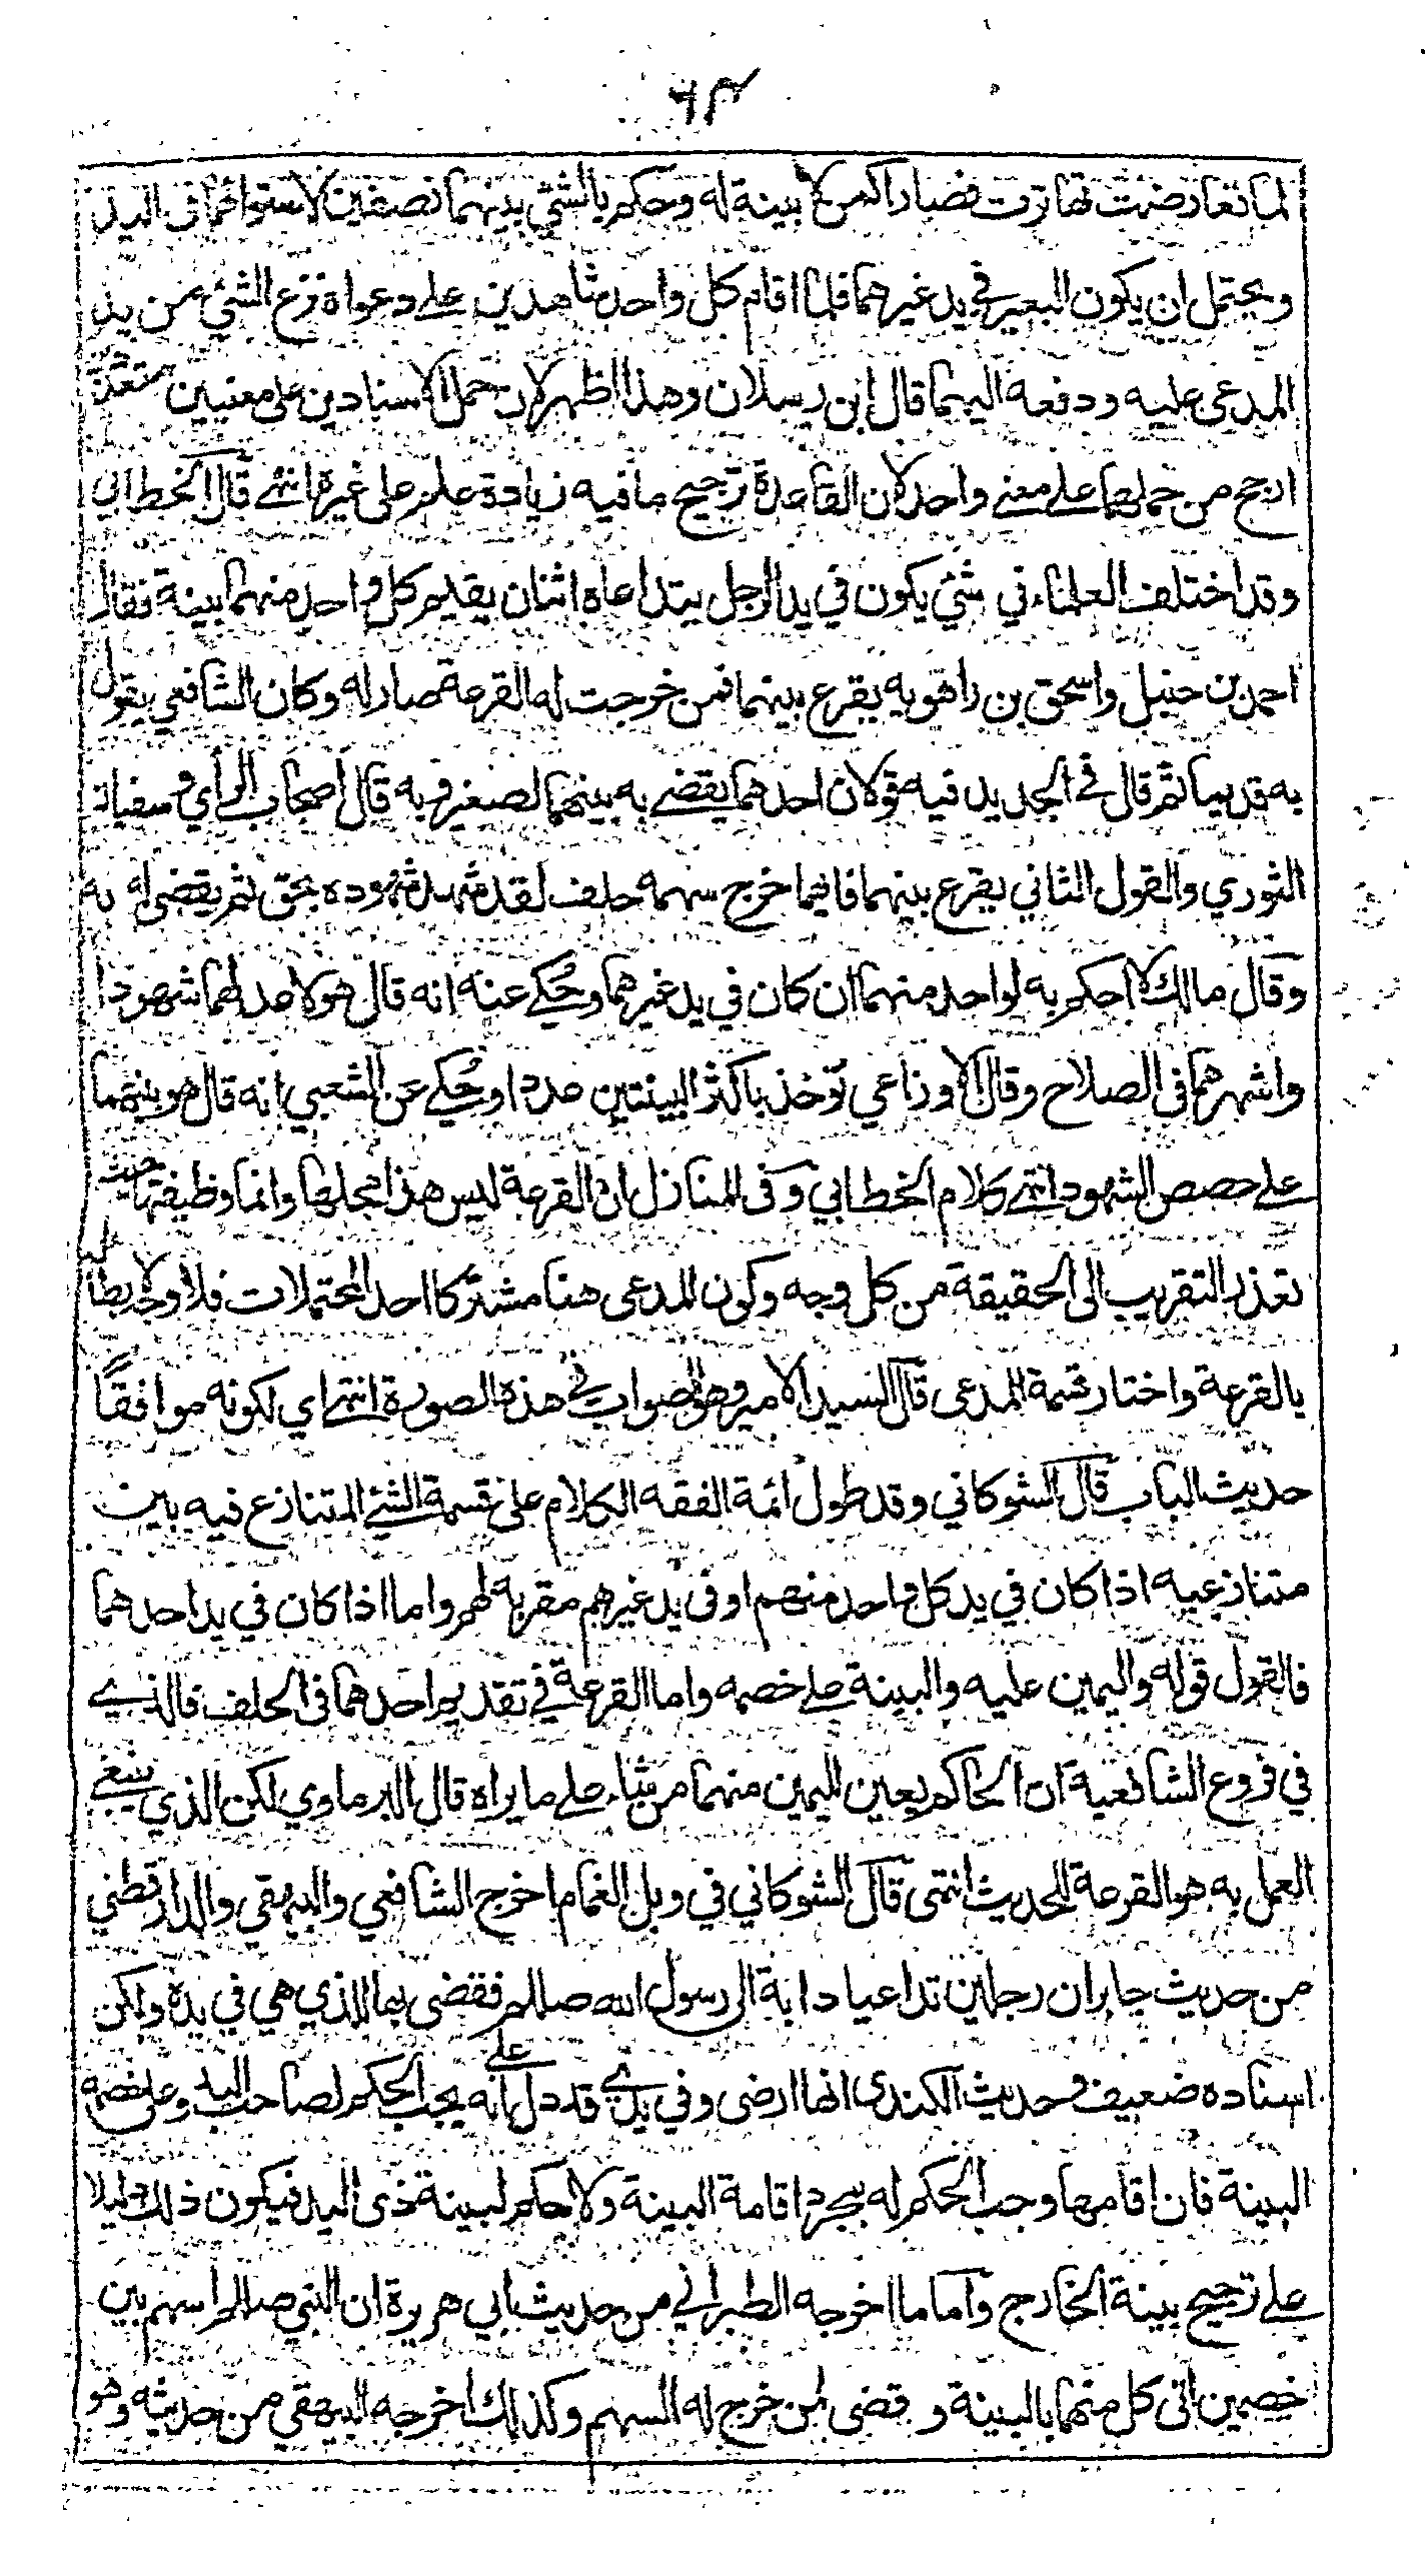 ٦٣
لما تعارضت تهاترت فصارا كمن لا بينة له وحكم بالشئ بينهما نصفين لاستوائهما في اليد
ويحتمل ان يكون البعير في يد غيرهما فلما اقام كل واحد شاهدين على دعواه نزع الشئ من يد
المدعى عليه ودفعه اليهما قال ابن رسلان وهذا اظهر لان حمل الاسنادين على معنيين متعددين
ارجح من حملهما على معنى واحد لان القاعدة ترجيح ما فيه زيادة علم على غيره انتهى قال الخطابي
وقد اختلف العلماء في شئ يكون في يد الرجل يتداعاه اثنان يقيم كل واحد منهما بينة فقال
احمد بن حنبل واسحق بن راهويه يقرع بينهما فمن خرجت له القرعة صار له وكان الشافعي يقول
به قديما ثم قال في الجديد فيه قولان احدهما يقضى به بينهما نصفين وبه قال اصحاب الرأي وسفيان
الثوري والقول الثاني يقرع بينهما فايهما خرج سهمه حلف لقد شهد شهوده بحق ثم يقضى له به
وقال مالك لا احكم به لواحد منهما ان كان في يد غيرهما وحُكي عنه انه قال هو لاعدلهما شهودا
واشهرهما في الصلاح وقال الاوزاعي تؤخذ باكثر البينتين عددا وحُكي عن الشعبي انه قال هو بينهما
على حصص الشهود انتهى كلام الخطابي وفي المنار ان القرعة ليس هذا محلها وانما وظيفتها حيث
تعذر التقريب الى الحقيقة من كل وجه وكون المدعى هنا مشتركا احد المحتملات فلا وجه لابطاله
بالقرعة واختار قسمة المدعى قال السيد الامير وهو الصواب في هذه الصورة انتهى اي لكونه موافقًا
حديث الباب قال الشوكاني وقد طول ائمة الفقه الكلام على قسمة الشئ المتنازع فيه بين
متنازعيه اذا كان في يد كل واحد منهم او في يد غيرهم مقر به لهم واما اذا كان في يد احدهما
فالقول قوله واليمين عليه والبينة على خصمه واما القرعة في تقديم احدهما في الحلف فالذي
في فروع الشافعية ان الحاكم يعين لليمين منهما من شاء على ما يراه قال البرماوي لكن الذي ينبغي
العمل به هو القرعة للحديث انتهى قال الشوكاني في وبل الغمام اخرج الشافعي والبيهقي والدارقطني
من حديث جابر ان رجلين تداعيا دابة الى رسول الله صللم فقضى بها للذي هي في يده ولكن
اسناده ضعيف وحديث الكندي انها ارضى وفي يدي قد دل على انه يجب الحكم لصاحب اليد وعلى خصمه
البينة فان اقامها وجب الحكم له بمجرد اقامة البينة ولا حكم لبينة ذى اليد فيكون ذلك دليلا
على ترجيح بينة الخارج واما ما اخرجه الطبراني من حديث ابي هريرة ان النبي صللم اسهم بين
خصمين اتى كل منهما بالبينة وقضى لمن خرج له السهم وكذلك اخرجه البيهقي من حديثه وهو